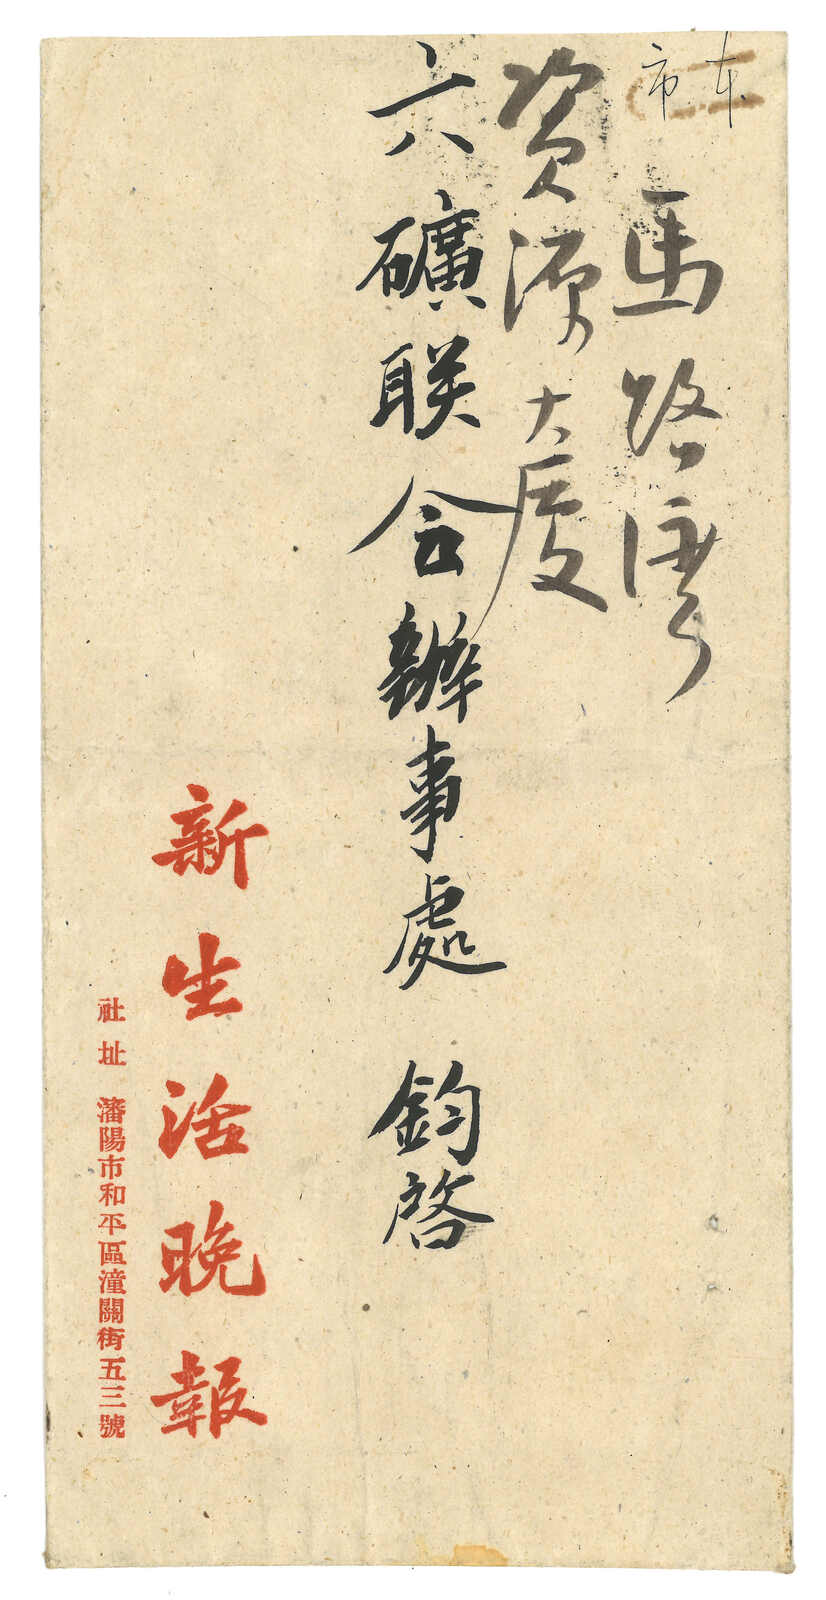 本市
馬路灣
資源大廈
六礦联合辦事處 鈞啓
新生活晚報
社址 瀋陽市和平區潼關街五三號